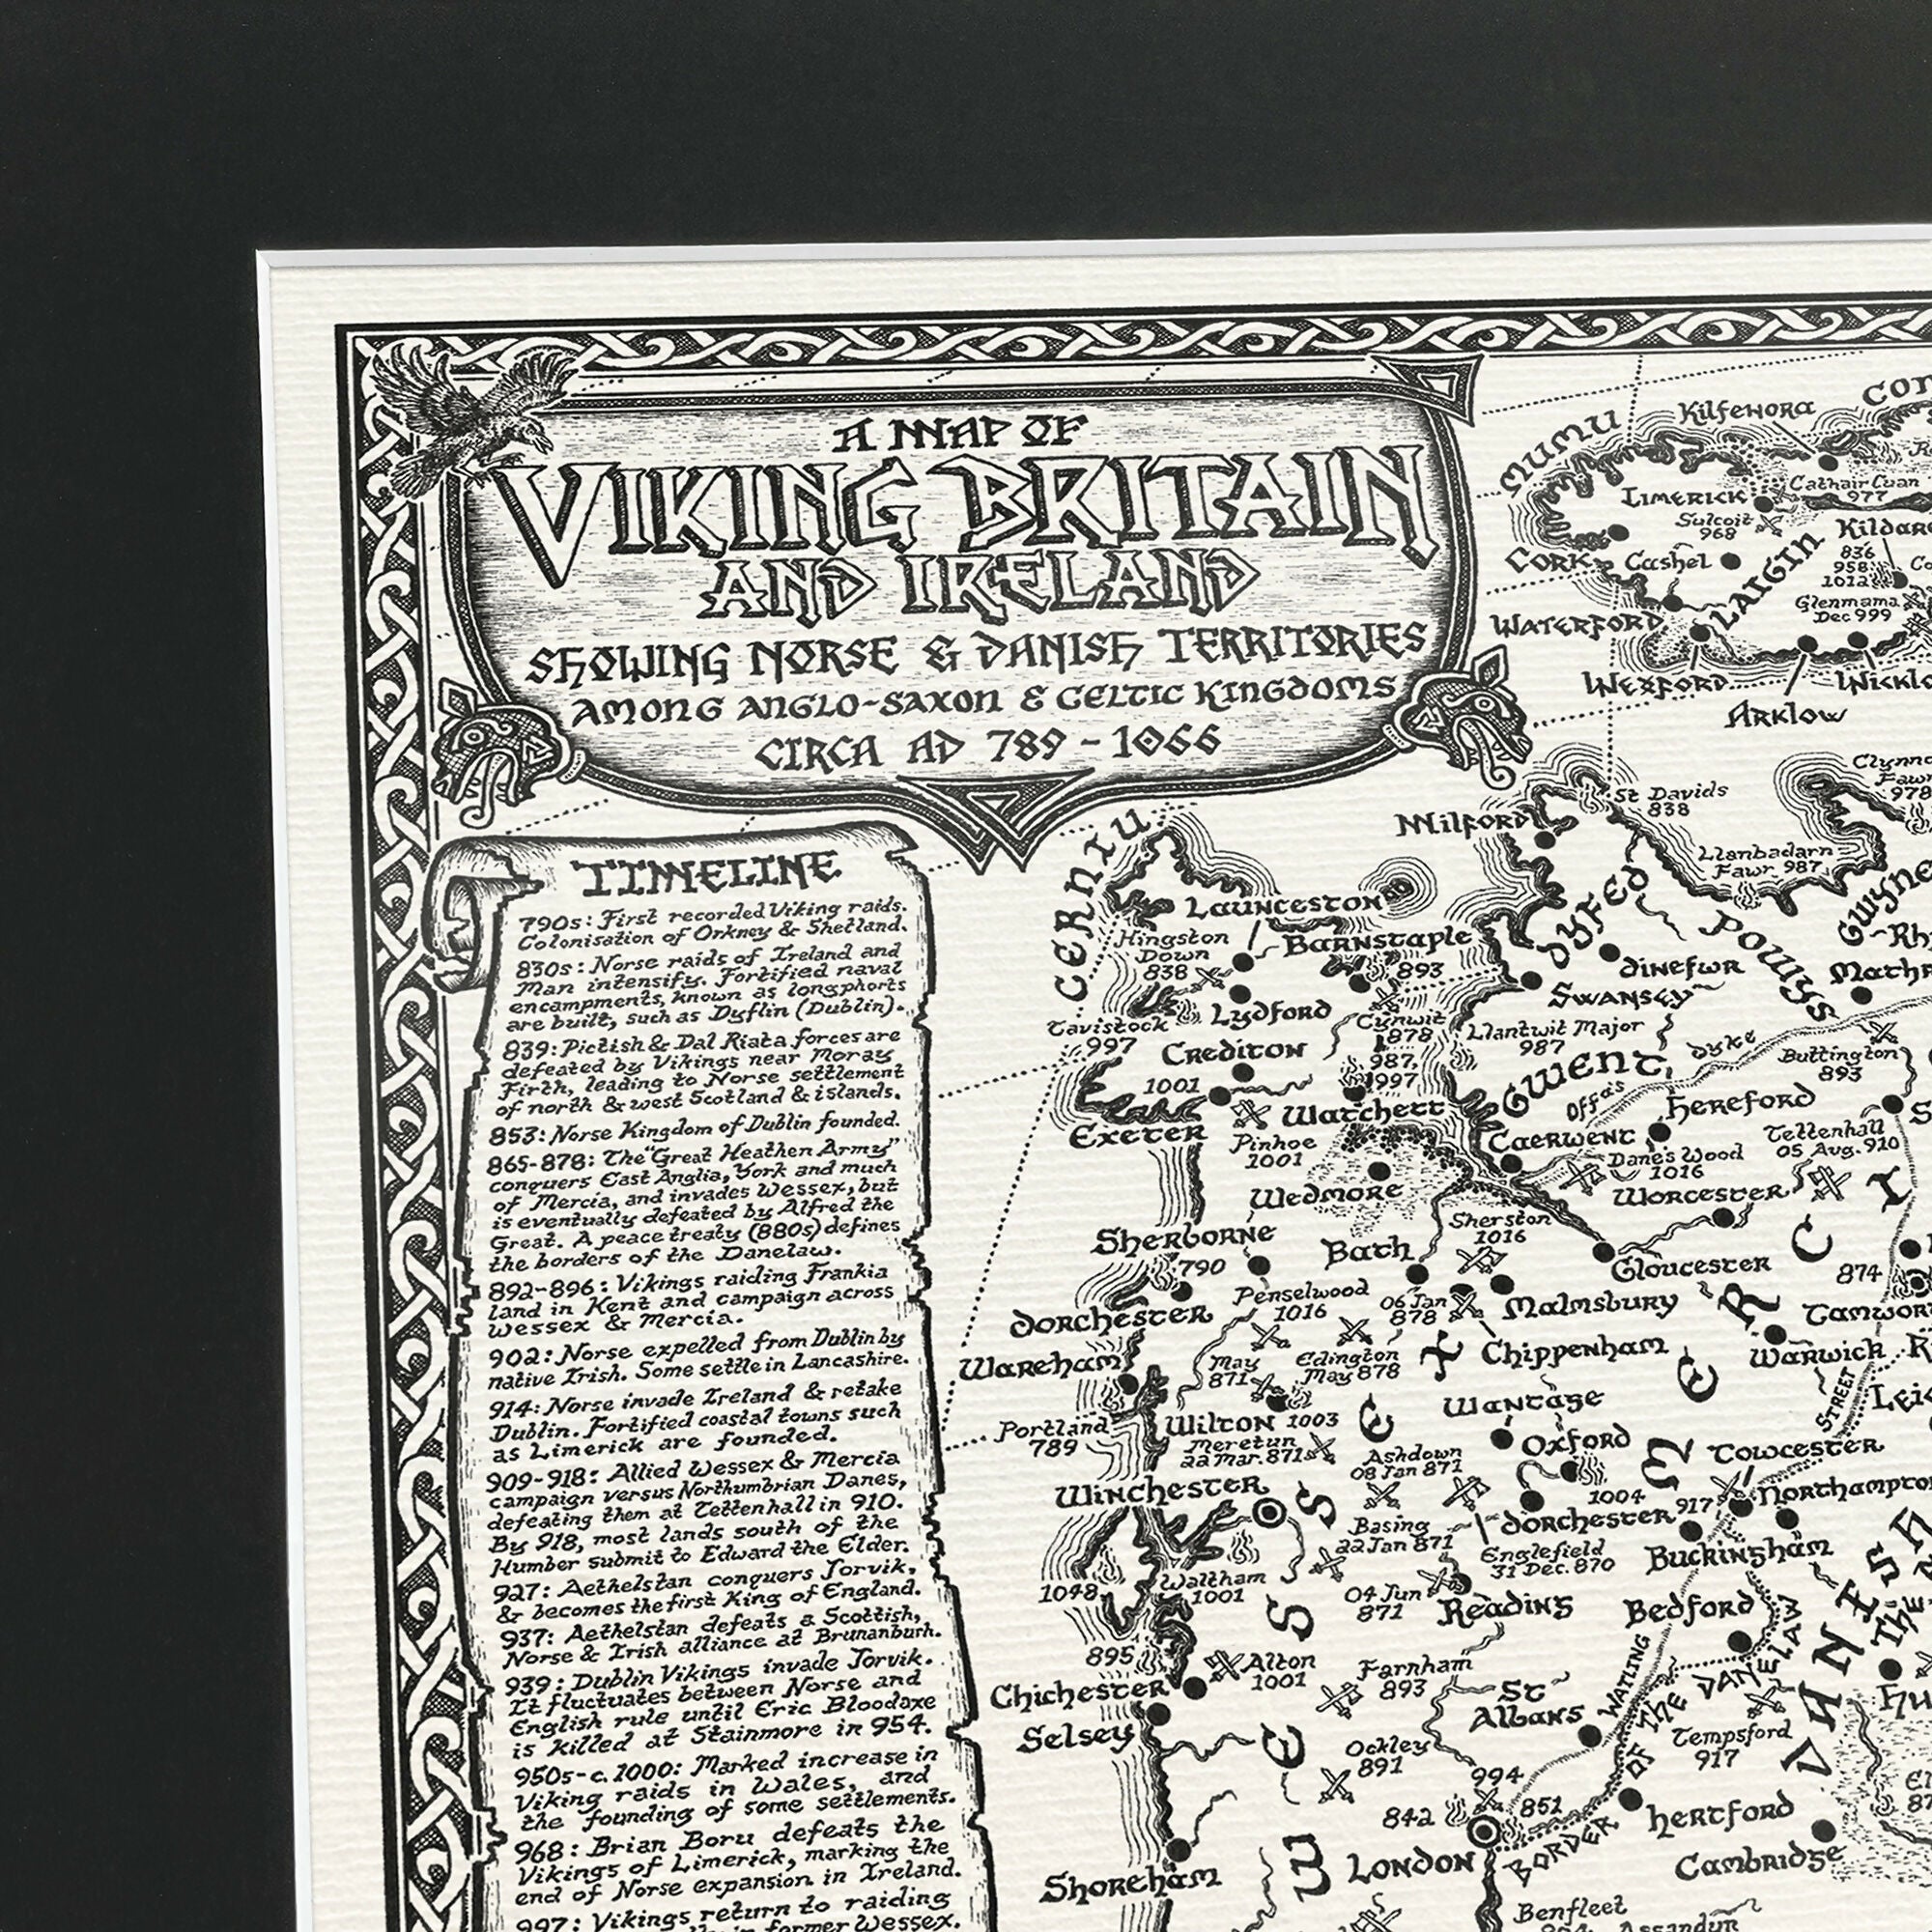 A MAP OF
VIKING BRITAIN
AND IRELAND
SHOWING NORSE & DANISH TERRITORIES
AMONG ANGLO-SAXON & CELTIC KINGDOMS
CIRCA AD 789 - 1066
TIMELINE
790s: First recorded Viking raids.
Colonisation of Orkney & Shetland.
830s: Norse raids of Ireland and
Man intensify. Fortified naval
encampments, known as longphorts
are built, such as Dyflin (Dublin).
839: Pictish & Dal Riata forces are
defeated by Vikings near Moray
Firth, leading to Norse settlement
of north & west Scotland & islands.
853: Norse Kingdom of Dublin founded.
865-878: The "Great Heathen Army"
conquers East Anglia, York and much
of Mercia, and invades Wessex, but
is eventually defeated by Alfred the
Great. A peace treaty (880s) defines
the borders of the Danelaw.
892-896: Vikings raiding Frankia
land in Kent and campaign across
Wessex & Mercia.
902: Norse expelled from Dublin by
native Irish. Some settle in Lancashire.
914: Norse invade Ireland & retake
Dublin. Fortified coastal towns such
as Limerick are founded.
909-918: Allied Wessex & Mercia
campaign versus Northumbrian Danes,
defeating them at Tettenhall in 910.
By 918, most lands south of the
Humber submit to Edward the Elder.
927: Aethelstan conquers Jorvik,
& becomes the first King of England.
937: Aethelstan defeats a Scottish,
Norse & Irish alliance at Brunanburh.
939: Dublin Vikings invade Jorvik.
It fluctuates between Norse and
English rule until Eric Bloodaxe
is killed at Stainmore in 954.
950s-c.1000: Marked increase in
Viking raids in Wales, and
the founding of some settlements.
968: Brian Boru defeats the
Vikings of Limerick, marking the
end of Norse expansion in Ireland.
997: Vikings return to raiding
former Wessex.
MUMU
Kilfenora
CON
LIMERICK
Cathair Cuan
977
Sulcoit
968
Kildar
836
958
1012
CORK
Cashel
LAIGIN
Glenmama
Dec 999
WATERFORD
WEXFORD
Wicklo
ARKLOW
St Davids
838
Clynno
Fawr
978
Milford
Llanbadarn
Fawr 987
CERNIU
DYFED
POWYS
GWYNE
LAUNCESTON
Hingston
Down
838
BARNSTAPLE
893
Rh
Dinefwr
Mathr
SWANSEY
Lydford
Tavistock
997
Cynwit
878
Llantwit Major
987
CREDITON
987,
997
GWENT
Offa's
Dyke
Buttington
893
1001
EXETER
Watchett
Pinhoe
1001
Hereford
CAERWENT
Tettenhall
05 Aug. 910
Dane's Wood
1016
Wedmore
WORCESTER
Sherston
1016
Sherborne
790
Bath
Gloucester
874
Penselwood
1016
06 Jan
878
Malmsbury
Tamwor
DORCHESTER
Chippenham
Warwick
Wareham
May
871
Edington
May 878
MERCI
STREET
Lei
WANTAGE
Portland
789
Wilton 1003
Meretun
22 Mar. 871
Oxford
TOWCESTER
Ashdown
08 Jan 871
1004
Winchester
917
Northampto
DORCHESTER
Basing
22 Jan 871
Englefield
31 Dec. 870
Buckingham
1048
Waltham
1001
04 Jun
871
READING
Bedford
WESSEX
DANISH
THE
895
Alton
1001
Farnham
893
Chichester
Selsey
St
Albans
WATLING
BORDER OF THE DANELAW
Tempsford
917
Hu
Ockley
891
994
842
851
Hertford
El
87
LONDON
Cambridge
Shoreham
Benfleet
Assandun